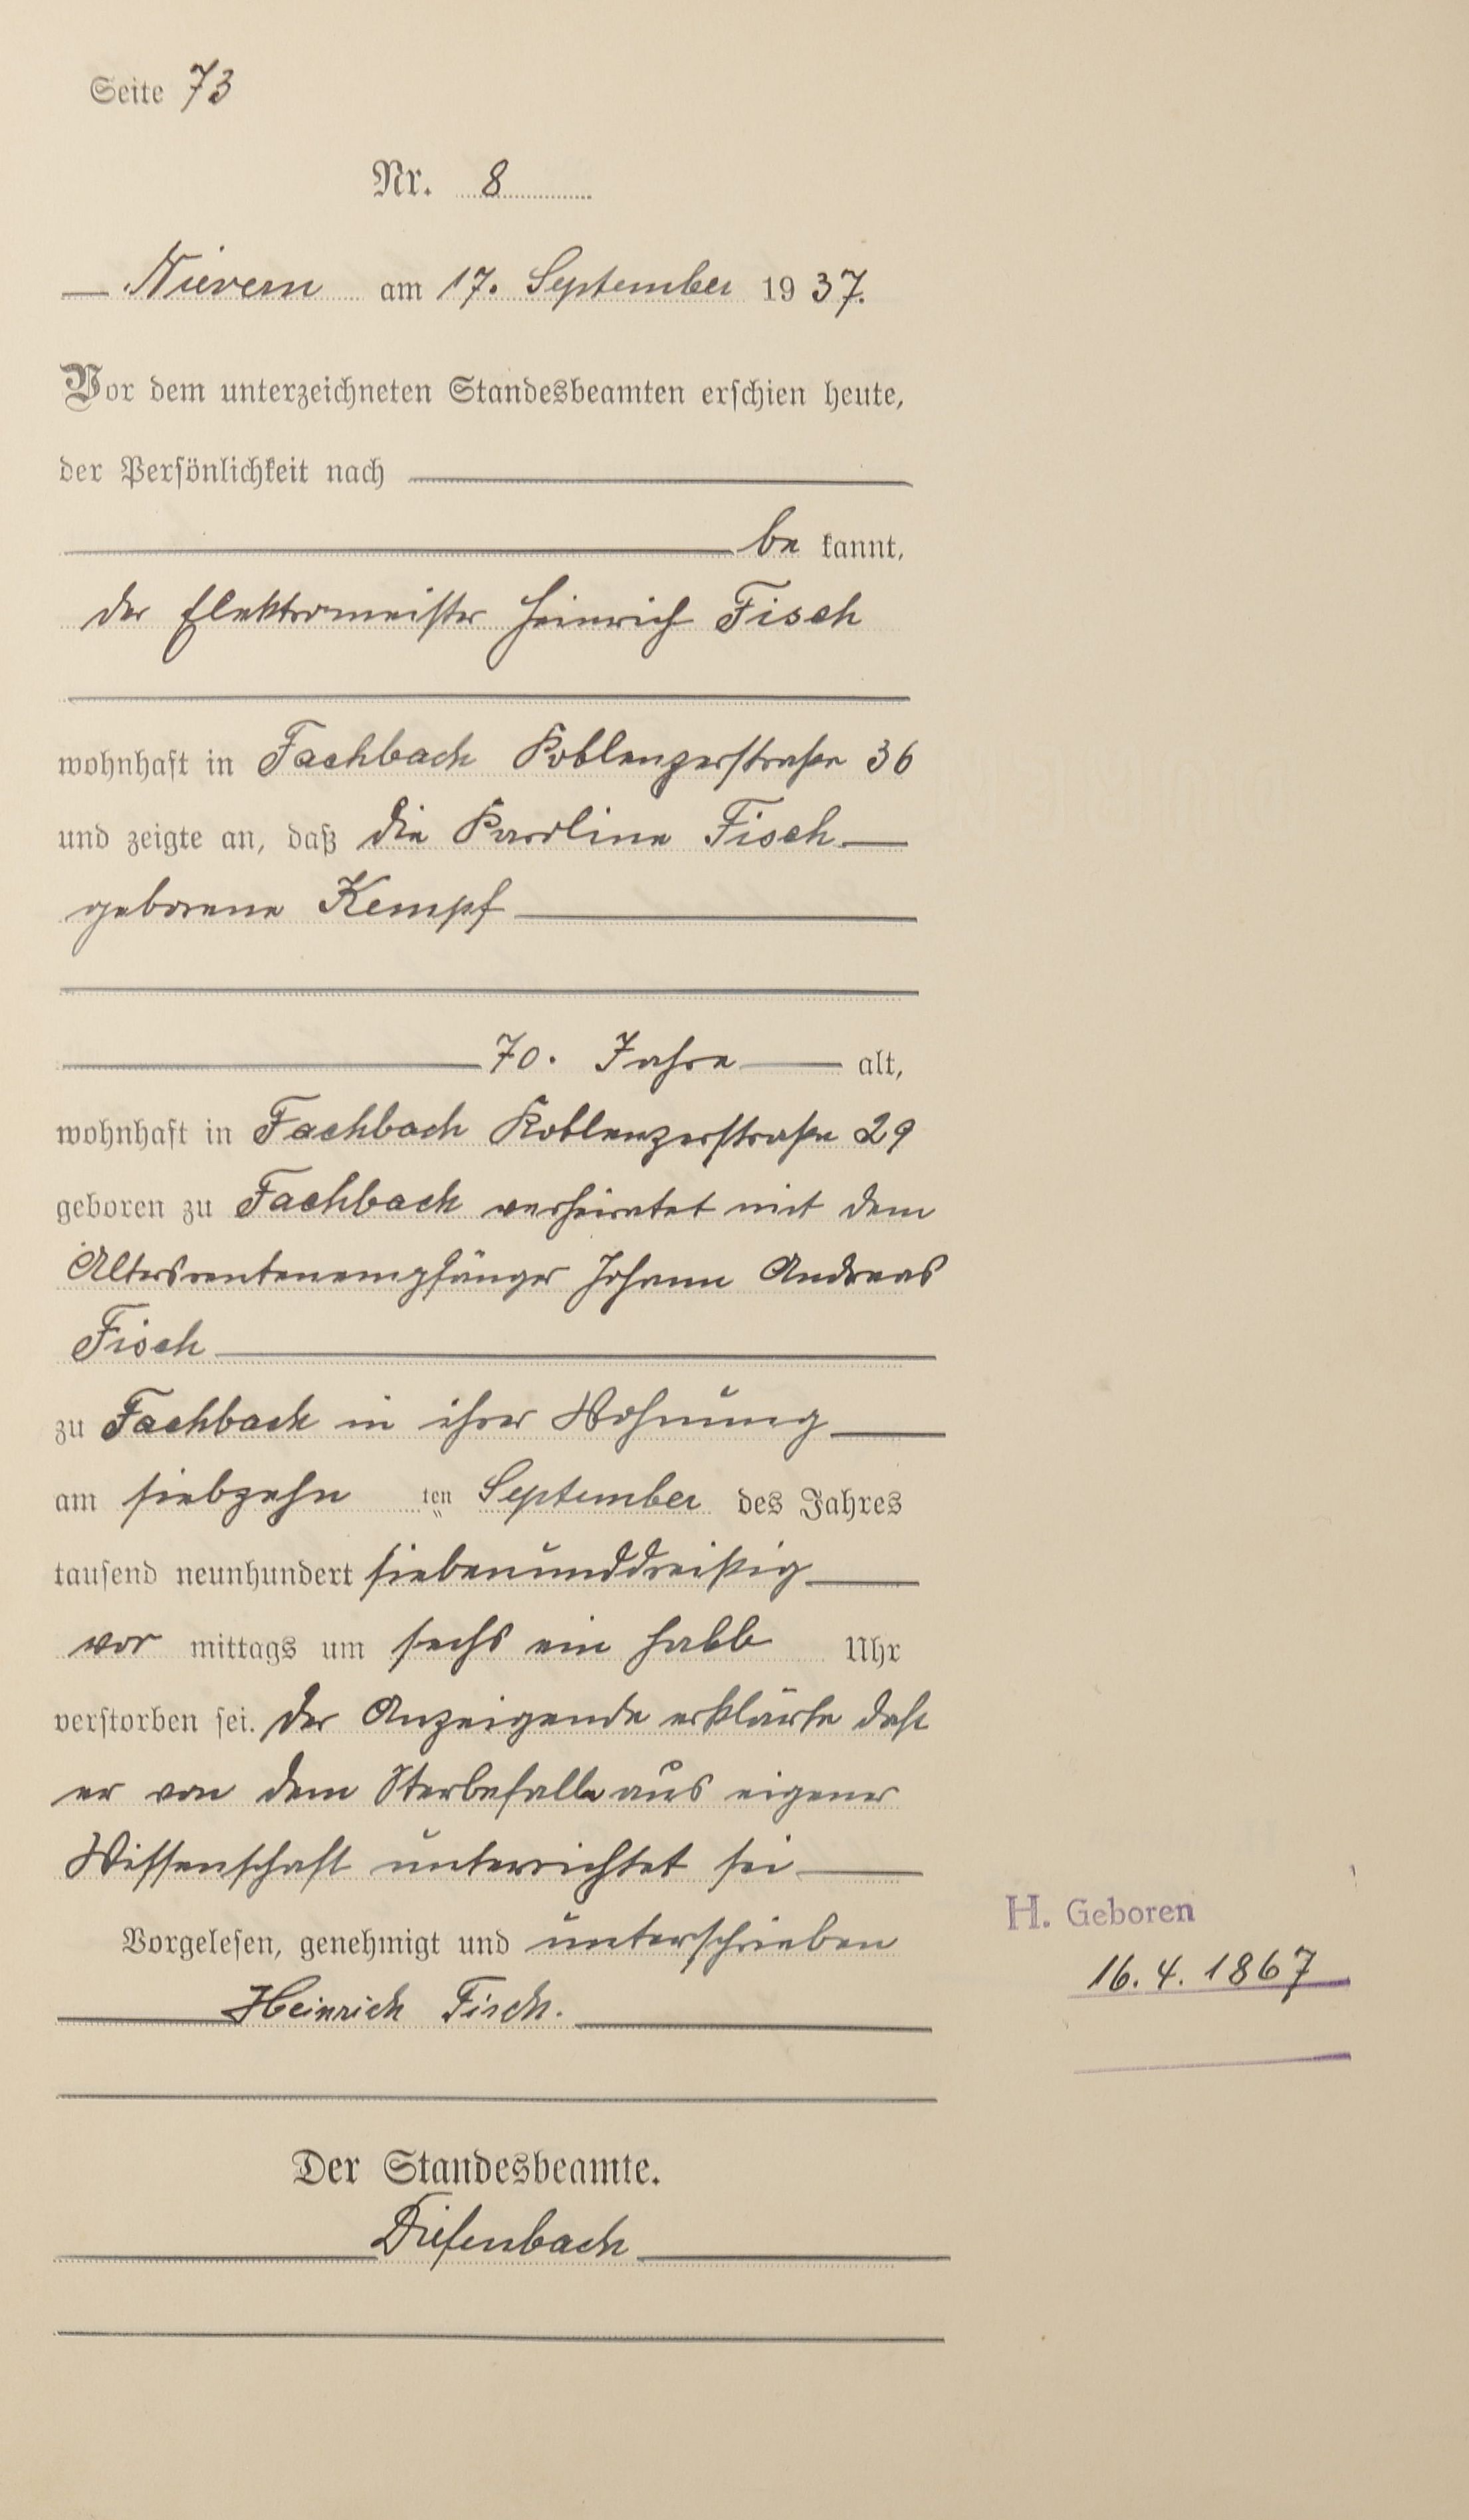 Seite 73
Nr. 8
Nievern am 17. September 1937.
Vor dem unterzeichneten Standesbeamten erschien heute,
der Persönlichkeit nach
be kannt,
der Elektromeister Heinrich Fisch
wohnhaft in Fachbach Koblenzerstraße 36
und zeigte an, daß die Karoline Fisch
geborene Kempf
70. Jahre alt,
wohnhaft in Fachbach Koblenzerstraße 29
geboren zu Fachbach verheiratet mit dem
Altersrentenempfänger Johann Andreas
Fisch
zu Fachbach in ihrer Wohnung
am siebzehn ten September des Jahres
tausend neunhundert siebenunddreißig
vor mittags um sechs ein halb Uhr
verstorben sei. Der Anzeigende erklärte daß
er von dem Sterbefalle aus eigener
Wissenschaft unterrichtet sei
Vorgelesen, genehmigt und unterschrieben
H. Geboren
16. 4. 1867
Heinrich Fisch.
Der Standesbeamte.
Diefenbach